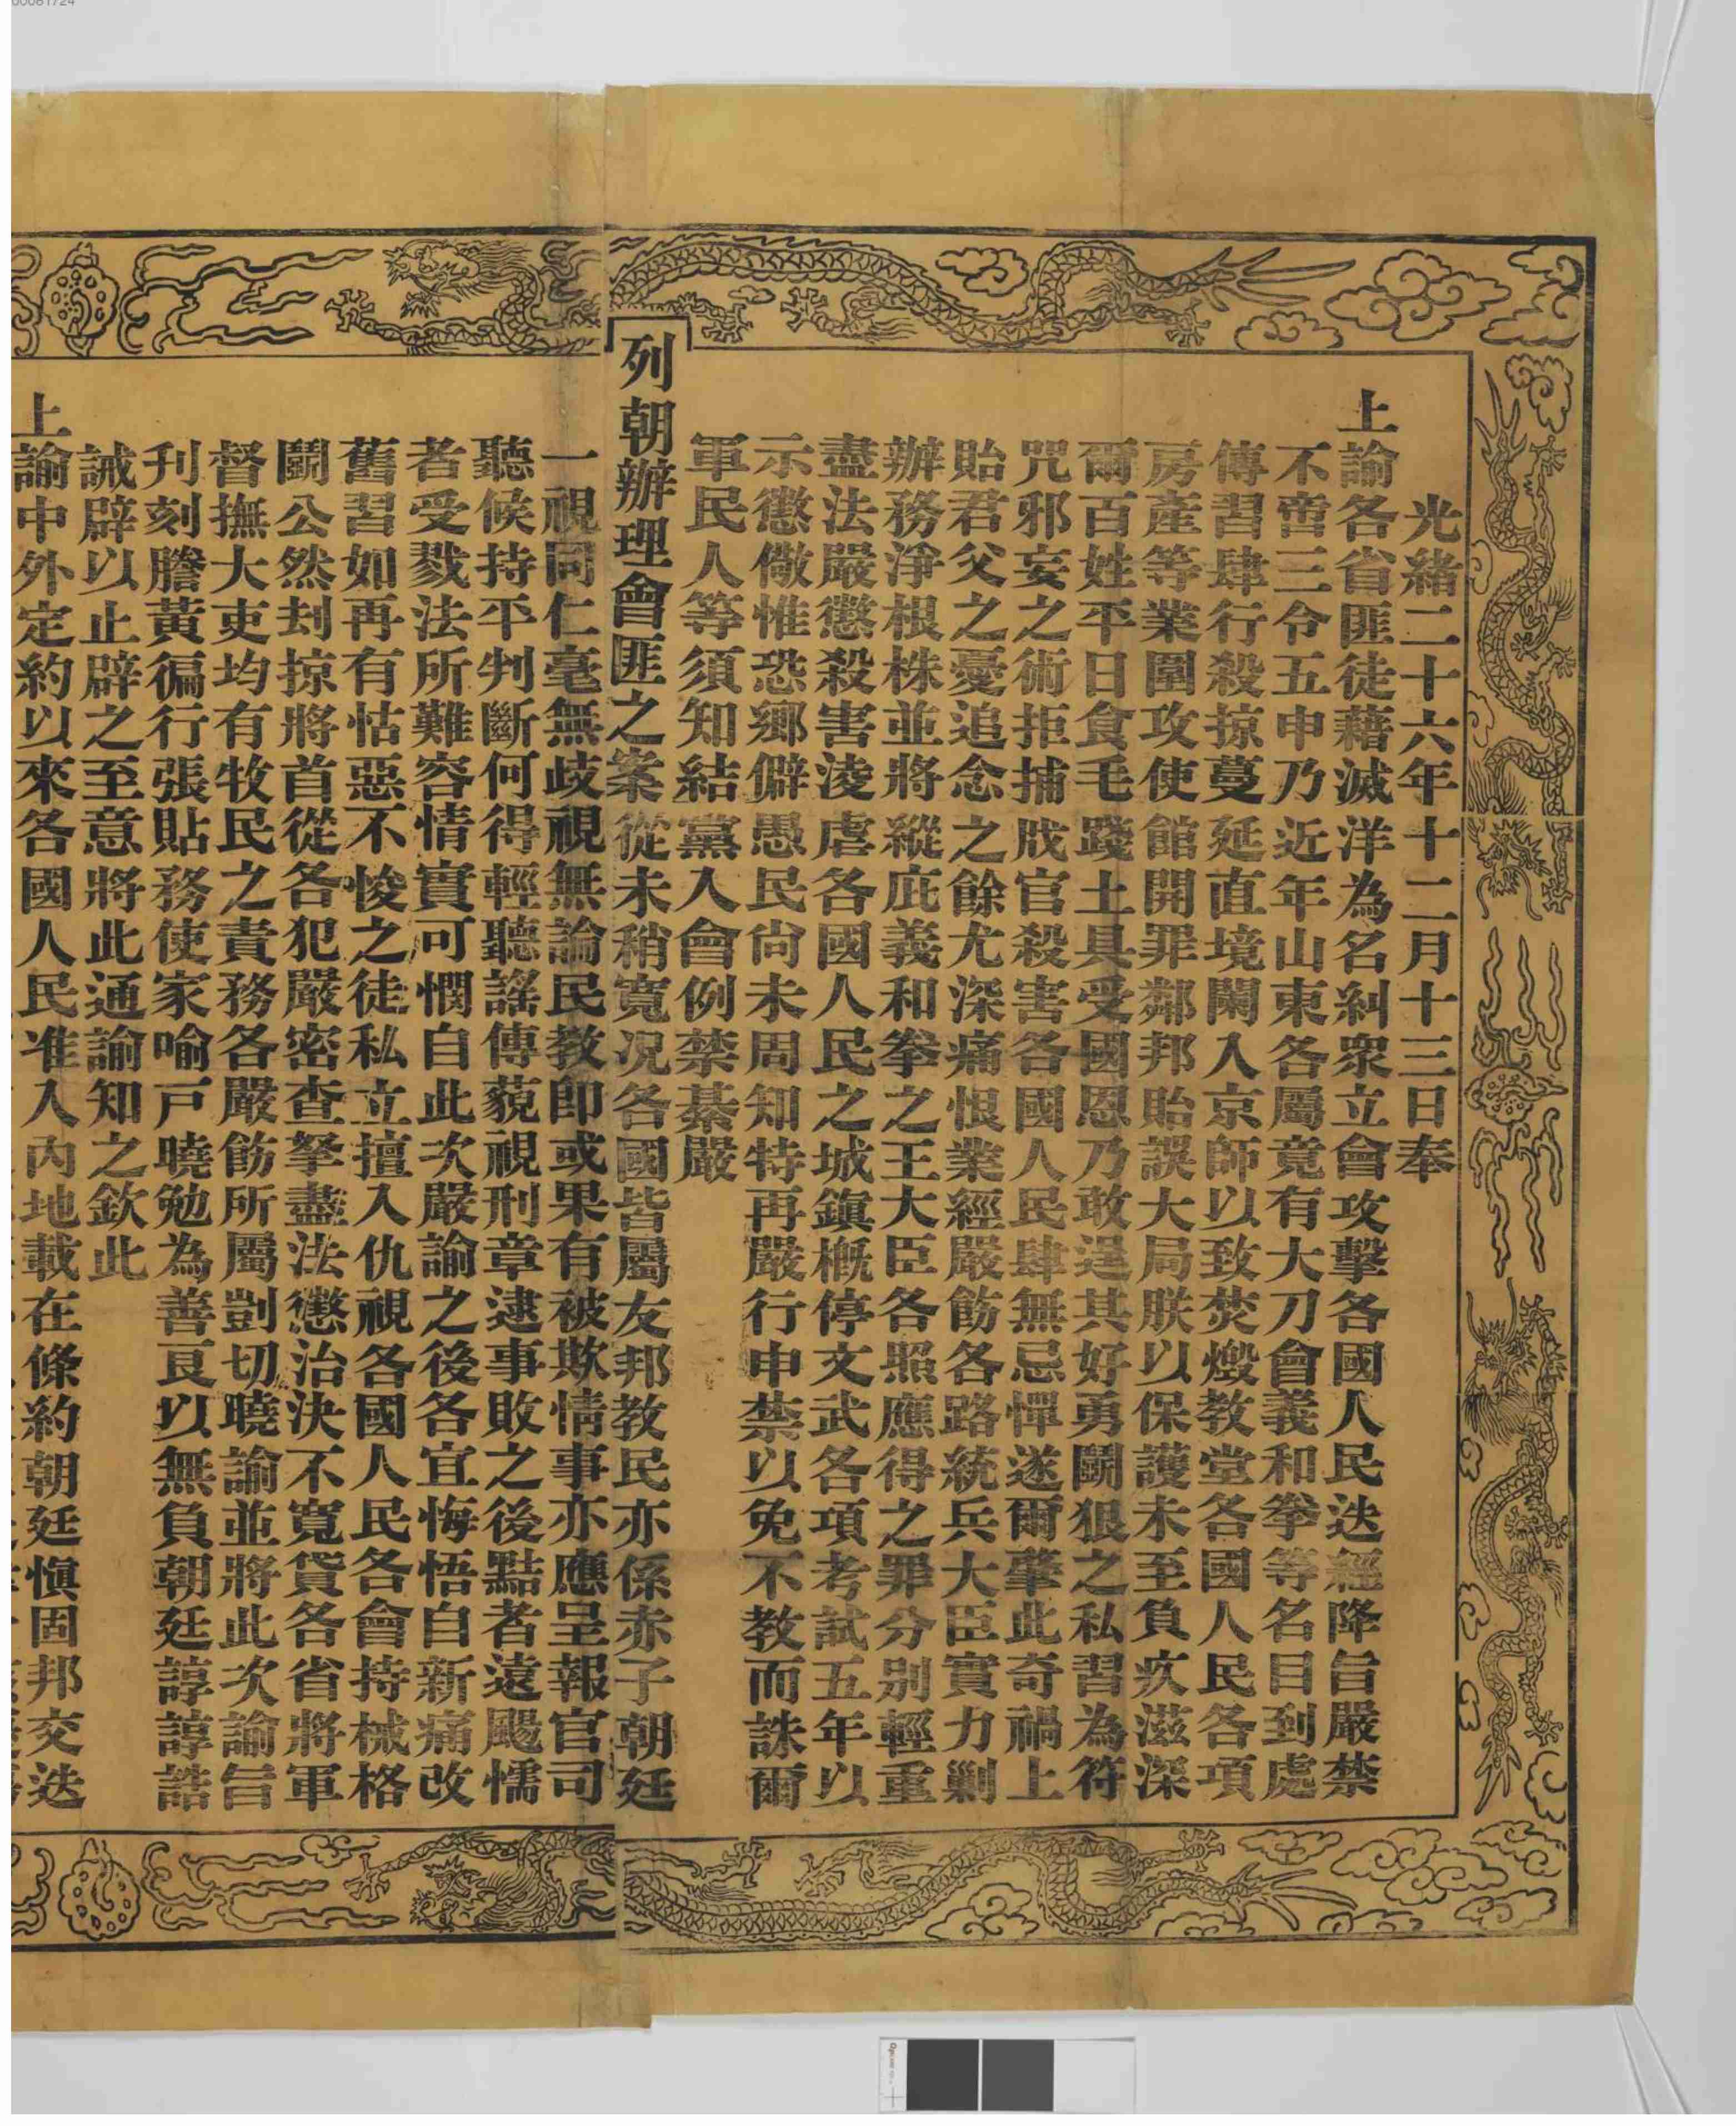 光緒二十六年十二月十三日奉
上諭各省匪徒藉滅洋為名糾眾立會攻擊各國人民迭經降旨嚴禁
不啻三令五申乃近年山東各屬竟有大刀會義和拳等名目到處
傳習肆行殺掠蔓延直境闌入京師以致焚燬教堂各國人民各項
房產等業圍攻使館開罪鄰邦貽誤大局朕以保護未至負疚滋深
爾百姓平日食毛踐土具受國恩乃敢逞其好勇鬬狠之私習為符
咒邪妄之術拒捕戕官殺害各國人民肆無忌憚遂爾肇此奇禍上
貽君父之憂追念之餘尤深痛恨業經嚴飭各路統兵大臣實力剿
辦務淨根株並將縱庇義和拳之王大臣各照應得之罪分別輕重
盡法嚴懲殺害淩虐各國人民之城鎮概停文武各項考試五年以
示懲儆惟恐鄉僻愚民尚未周知特再嚴行申禁以免不教而誅爾
軍民人等須知結黨入會例禁綦嚴
列朝辦理會匪之案從未稍寬況各國皆屬友邦教民亦係赤子朝廷
一視同仁毫無歧視無論民教即或果有被欺情事亦應呈報官司
聽候持平判斷何得輕聽謠傳藐視刑章逮事敗之後黠者遠颺懦
者受戮法所難容情實可憫自此次嚴諭之後各宜悔悟自新痛改
舊習如再有怙惡不悛之徒私立擅入仇視各國人民各會持械格
鬬公然刦掠將首從各犯嚴密查拏盡法懲治決不寬貸各省將軍
督撫大吏均有牧民之責務各嚴飭所屬剴切曉諭並將此次諭旨
刋刻謄黃徧行張貼務使家喻戶曉勉為善良以無負朝廷諄諄誥
誡辟以止辟之至意將此通諭知之欽此
上諭中外定約以來各國人民准入內地載在條約朝廷愼固邦交迭